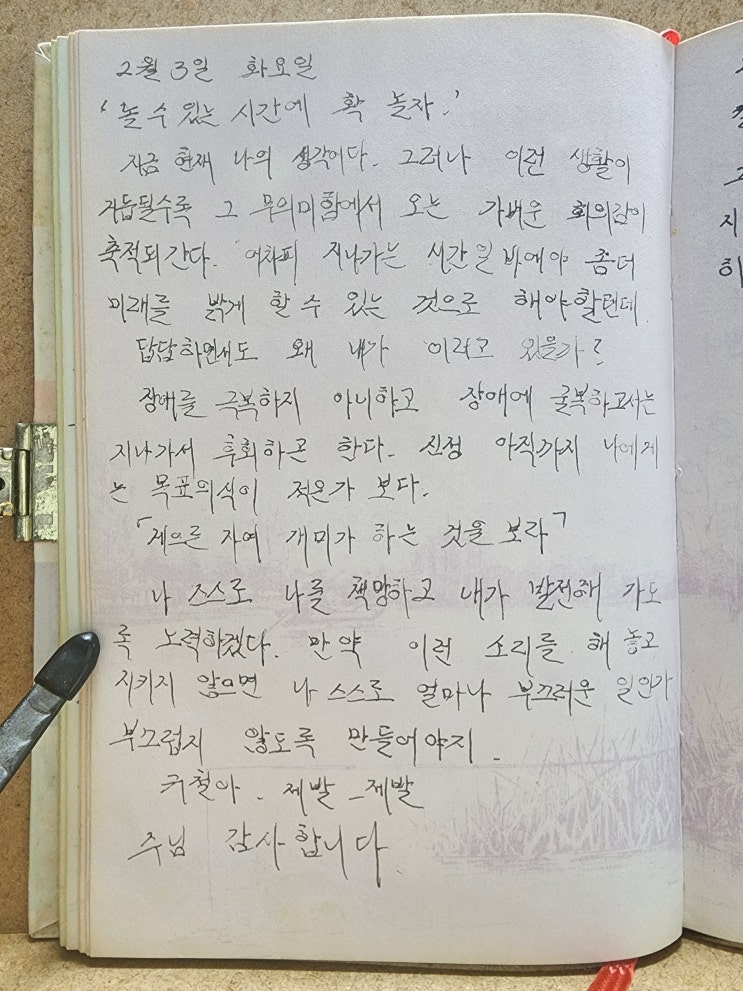 2월 3일 화요일
'놀 수 있는 시간에 확 놀자.'
지금 현재 나의 생각이다. 그러나 이런 생활이
거듭될수록 그 무의미함에서 오는 가벼운 회의감이
축적되간다. 어차피 지나가는 시간일바에야 좀더
미래를 밝게 할 수 있는 것으로 해야할텐데.
답답하면서도 왜 내가 이러고 있을가?
장애를 극복하지 아니하고 장애에 굴복하고서는
지나가서 후회하곤 한다. 진정 아직까지 나에게
는 목표의식이 적은가 보다.
「게으른 자여 개미가 하는 것을 보라」
나 스스로 나를 책망하고 내가 발전해 가도
록 노력하겠다. 만약 이런 소리를 해 놓고
지키지 않으면 나 스스로 얼마나 부끄러운 일인가
부끄럽지 않도록 만들어야지.
제발 제발
주님 감사합니다.